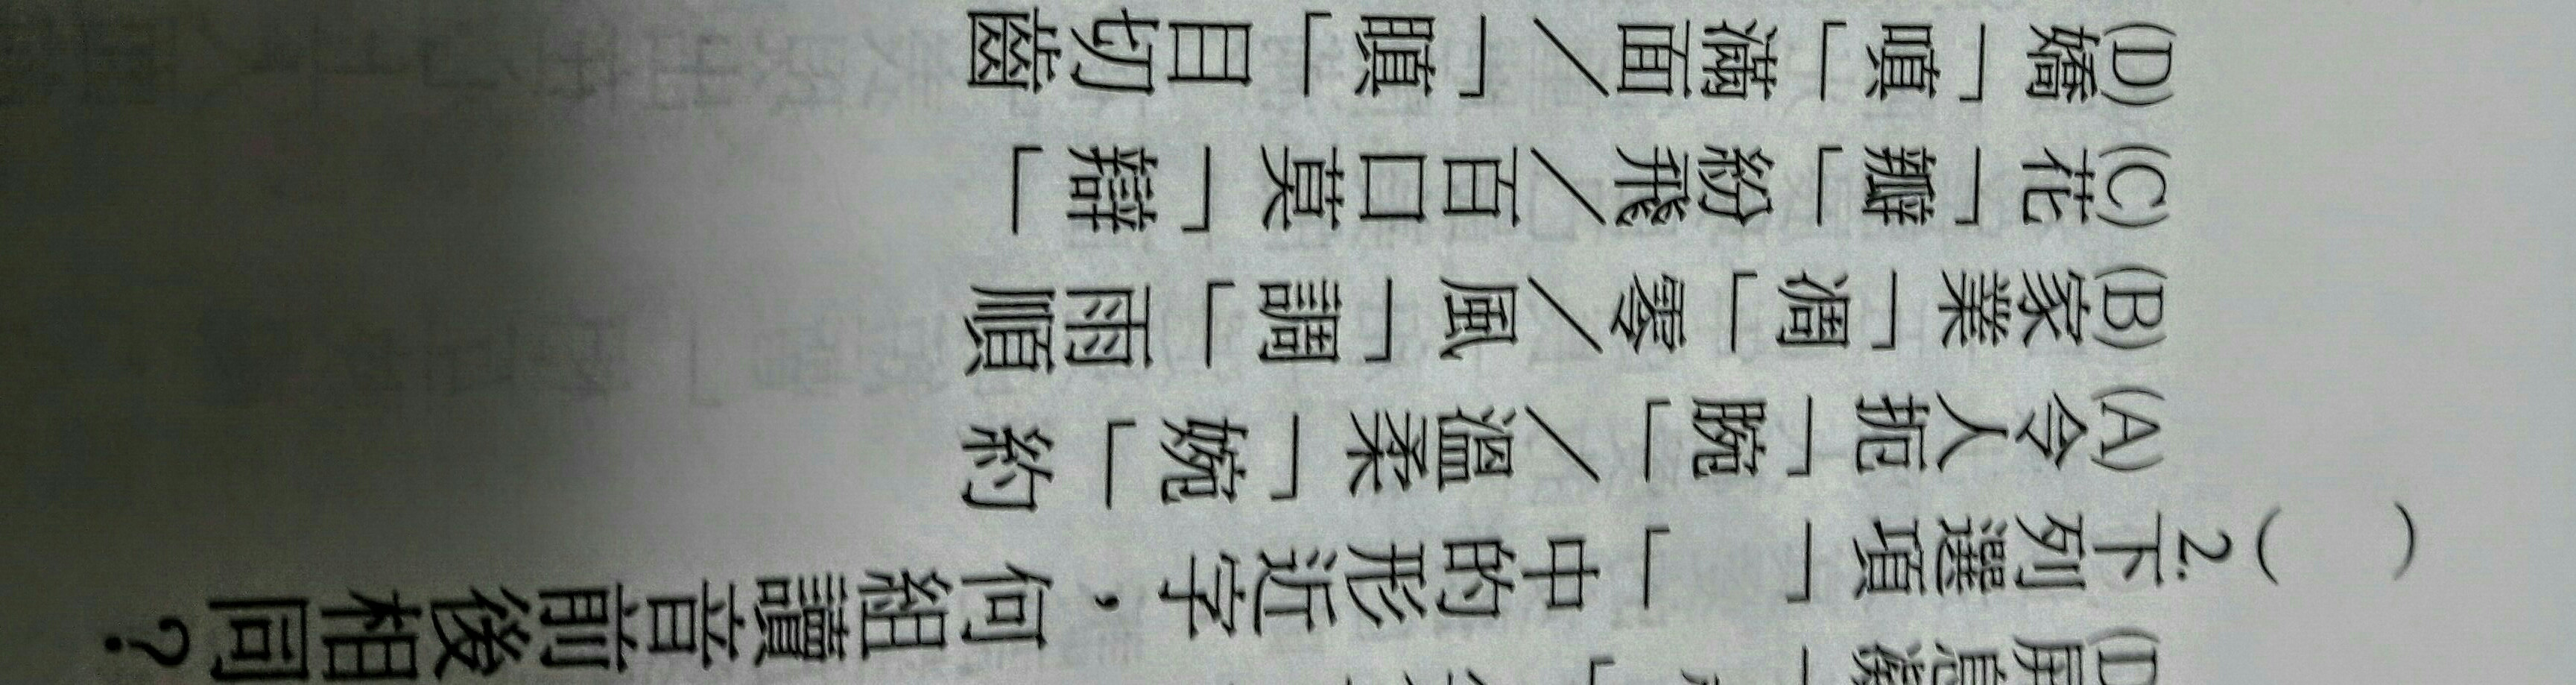 ( )2.下列選項「 」中的形近字，何組讀音前後相同？
(A)令人扼「腕」／溫柔「婉」約
(B)家業「凋」零／風「調」雨順
(C)花「瓣」紛飛／百口莫「辯」
(D)嬌「嗔」滿面／「瞋」目切齒